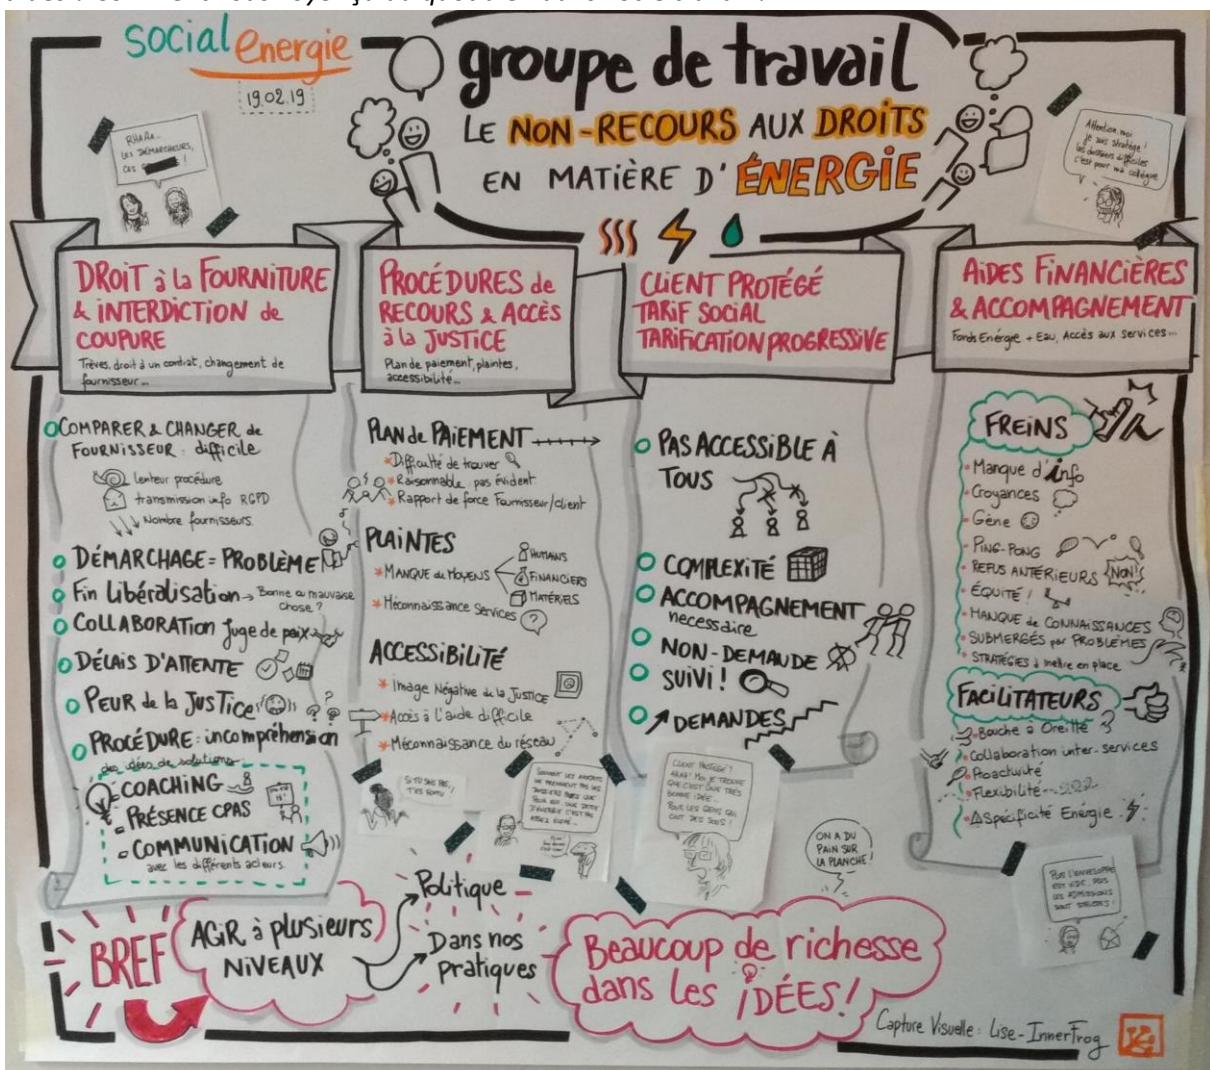 social energie
19.02.19
groupe de travail
LE NON-RECOURS AUX DROITS
EN MATIÈRE D'ÉNERGIE
RHAAA...
LES DÉMARCHEURS,
CES
Attention, moi
je suis stratège !
les dossiers difficiles
c'est pour ma collègue
DROIT à la FOURNITURE
& INTERDICTION de
COUPURE
Trèves, droit à un contrat, changement de
fournisseur...
COMPARER & CHANGER de
FOURNISSEUR : difficile
lenteur procédure
transmission info RGPD
Nombre fournisseurs
DÉMARCHAGE = PROBLÈME
Fin Libéralisation → Bonne ou mauvaise
chose ?
COLLABORATION Juge de paix
DÉLAIS D'ATTENTE
PEUR de la JUSTICE
PROCÉDURE : incompréhension
des idées de solutions
COACHING
- PRÉSENCE CPAS
- COMMUNICATION
avec les différents acteurs
PROCÉDURES de
RECOURS & ACCÈS
à la JUSTICE
Plan de paiement, plaintes,
accessibilité...
PLAN de PAIEMENT
Difficulté de trouver
Raisonnable pas évident
Rapport de force Fournisseur/client
PLAINTES
MANQUE de MOYENS
HUMAINS
FINANCIERS
MATÉRIELS
Méconnaissance Services
ACCESSIBILITÉ
Image Négative de la JUSTICE
Accès à l'aide difficile
Méconnaissance du réseau
SI TU SAIS PAS,
T'ES FOUTU
CLIENT PROTÉGÉ
TARIF SOCIAL
TARIFICATION PROGRESSIVE
PAS ACCESSIBLE À
TOUS
COMPLEXITÉ
ACCOMPAGNEMENT
necessaire
NON-DEMANDE
SUIVI !
DEMANDES
CLIENT PROTÉGÉ ?
AHAA ! MOI JE TROUVE
QUE C'EST UNE TRÈS
BONNE IDÉE...
POUR LES GENS QUI
ONT DES SOUS !
ON A DU
PAIN SUR
LA PLANCHE !
AIDES FINANCIÈRES
& ACCOMPAGNEMENT
Fonds Énergie + Eau, Accès aux services...
FREINS
Manque d'info
Croyances
Gêne
PING-PONG
REFUS ANTÉRIEURS
NON !
ÉQUITÉ !
MANQUE de CONNAISSANCES
SUBMERGÉS par PROBLÈMES
STRATÉGIES à mettre en place
FACILITATEURS
Bouche à Oreille
Collaboration inter-services
Proactivité
Flexibilité
Spécificité Énergie
PLUS L'ENVELOPPE
EST VIDE, PLUS
LES ADMISSIONS
SONT
BREF
AGIR à plusieurs
NIVEAUX
Politique
Dans nos
pratiques
Beaucoup de richesse
dans les iDÉES !
Capture Visuelle : Lise - InnerFrog